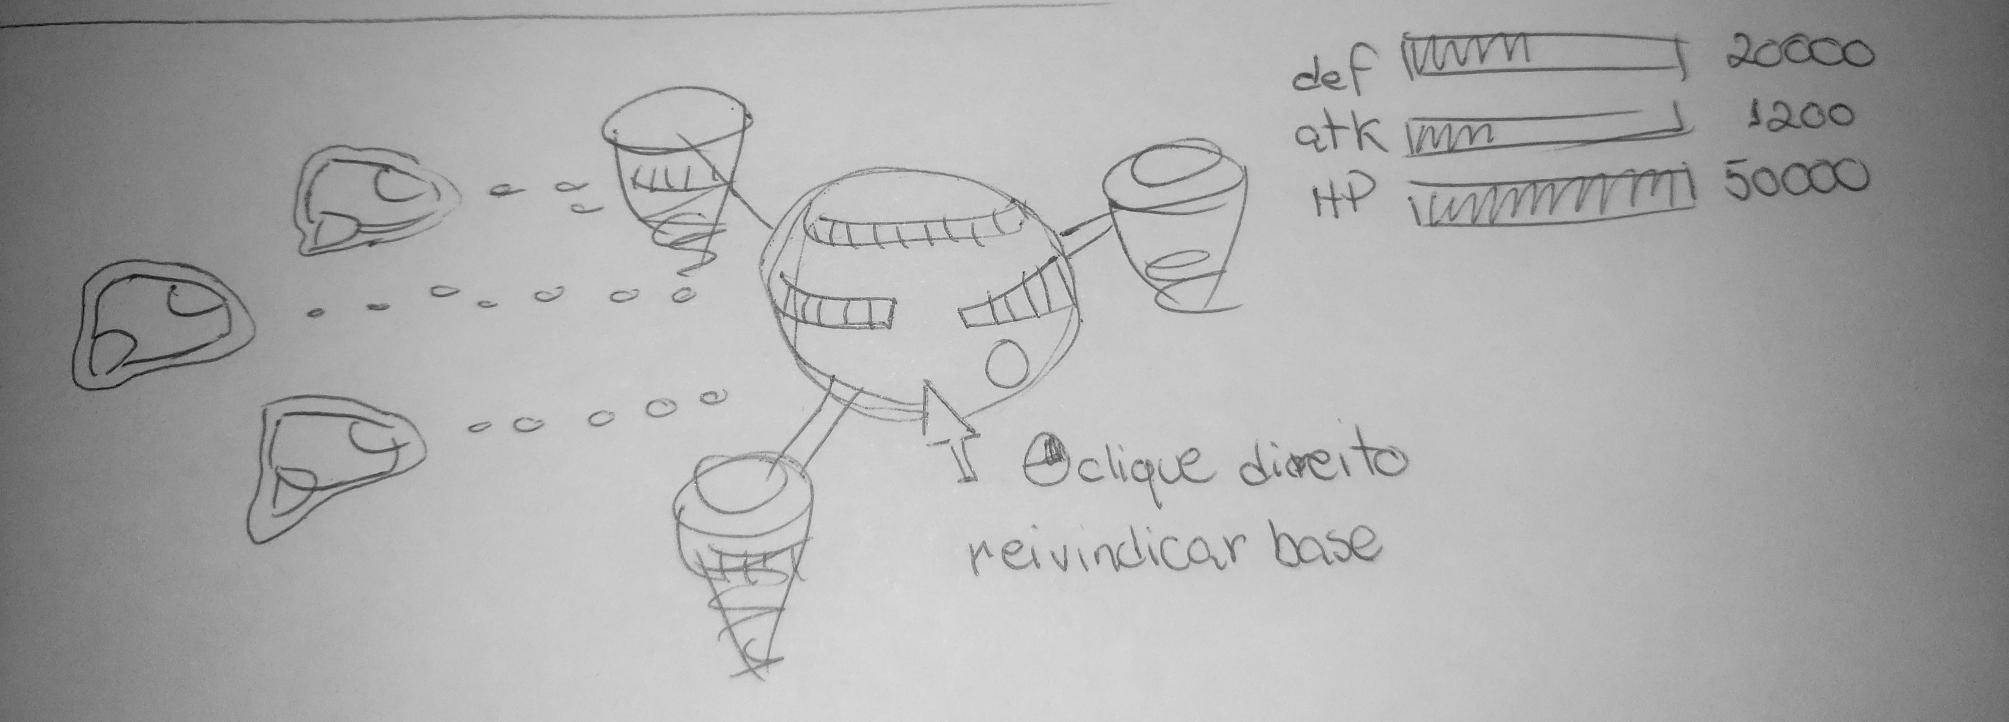 def 20000
atk 1200
HP 50000
clique direito
reivindicar base